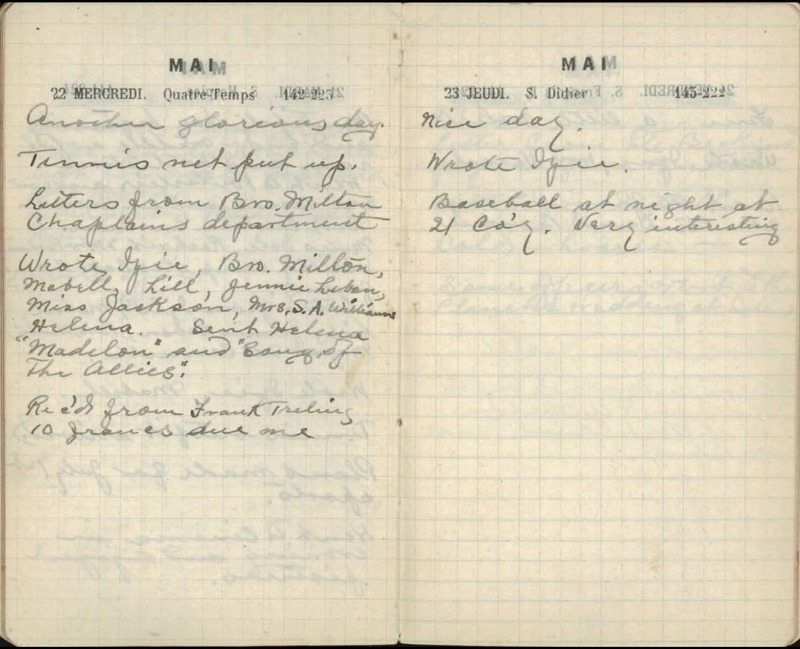 MAI
22 MERCREDI. Quatre-Temps 142-223
Another glorious day.
Tennis net put up.
Letters from Bro. Milton
Chaplains department
Wrote Izie, Bro. Milton,
Mabell, Lill, Jennie
Miss Jackson, Mrs. S. A. Williams
Helena. Sent Helena
"Madelon" and "Song of
The Allies".
Rec'd from Frank
10 francs due me
MAI
23 JEUDI. S. Didier 143-222
Nice day.
Wrote Izie.
Baseball at night at
21 Co'y. Very interesting